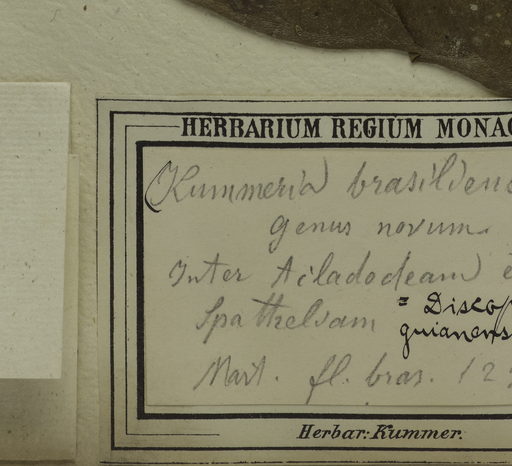 HERBARIUM REGIUM MONAC
(Kummeria brasiliens
genus novum.
Inter Aciladodeam e
Spathelvam = Discop
guianens
Mart. fl. bras. 12
Herbar: Kummer.